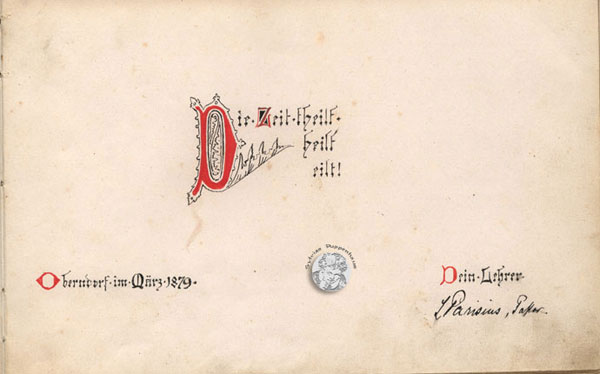 Die Zeit theilt
heilt
eilt!
Sabines Puppenheim
Oberndorf im März 1879.
Dein Lehrer
L Parisius, Pastor.